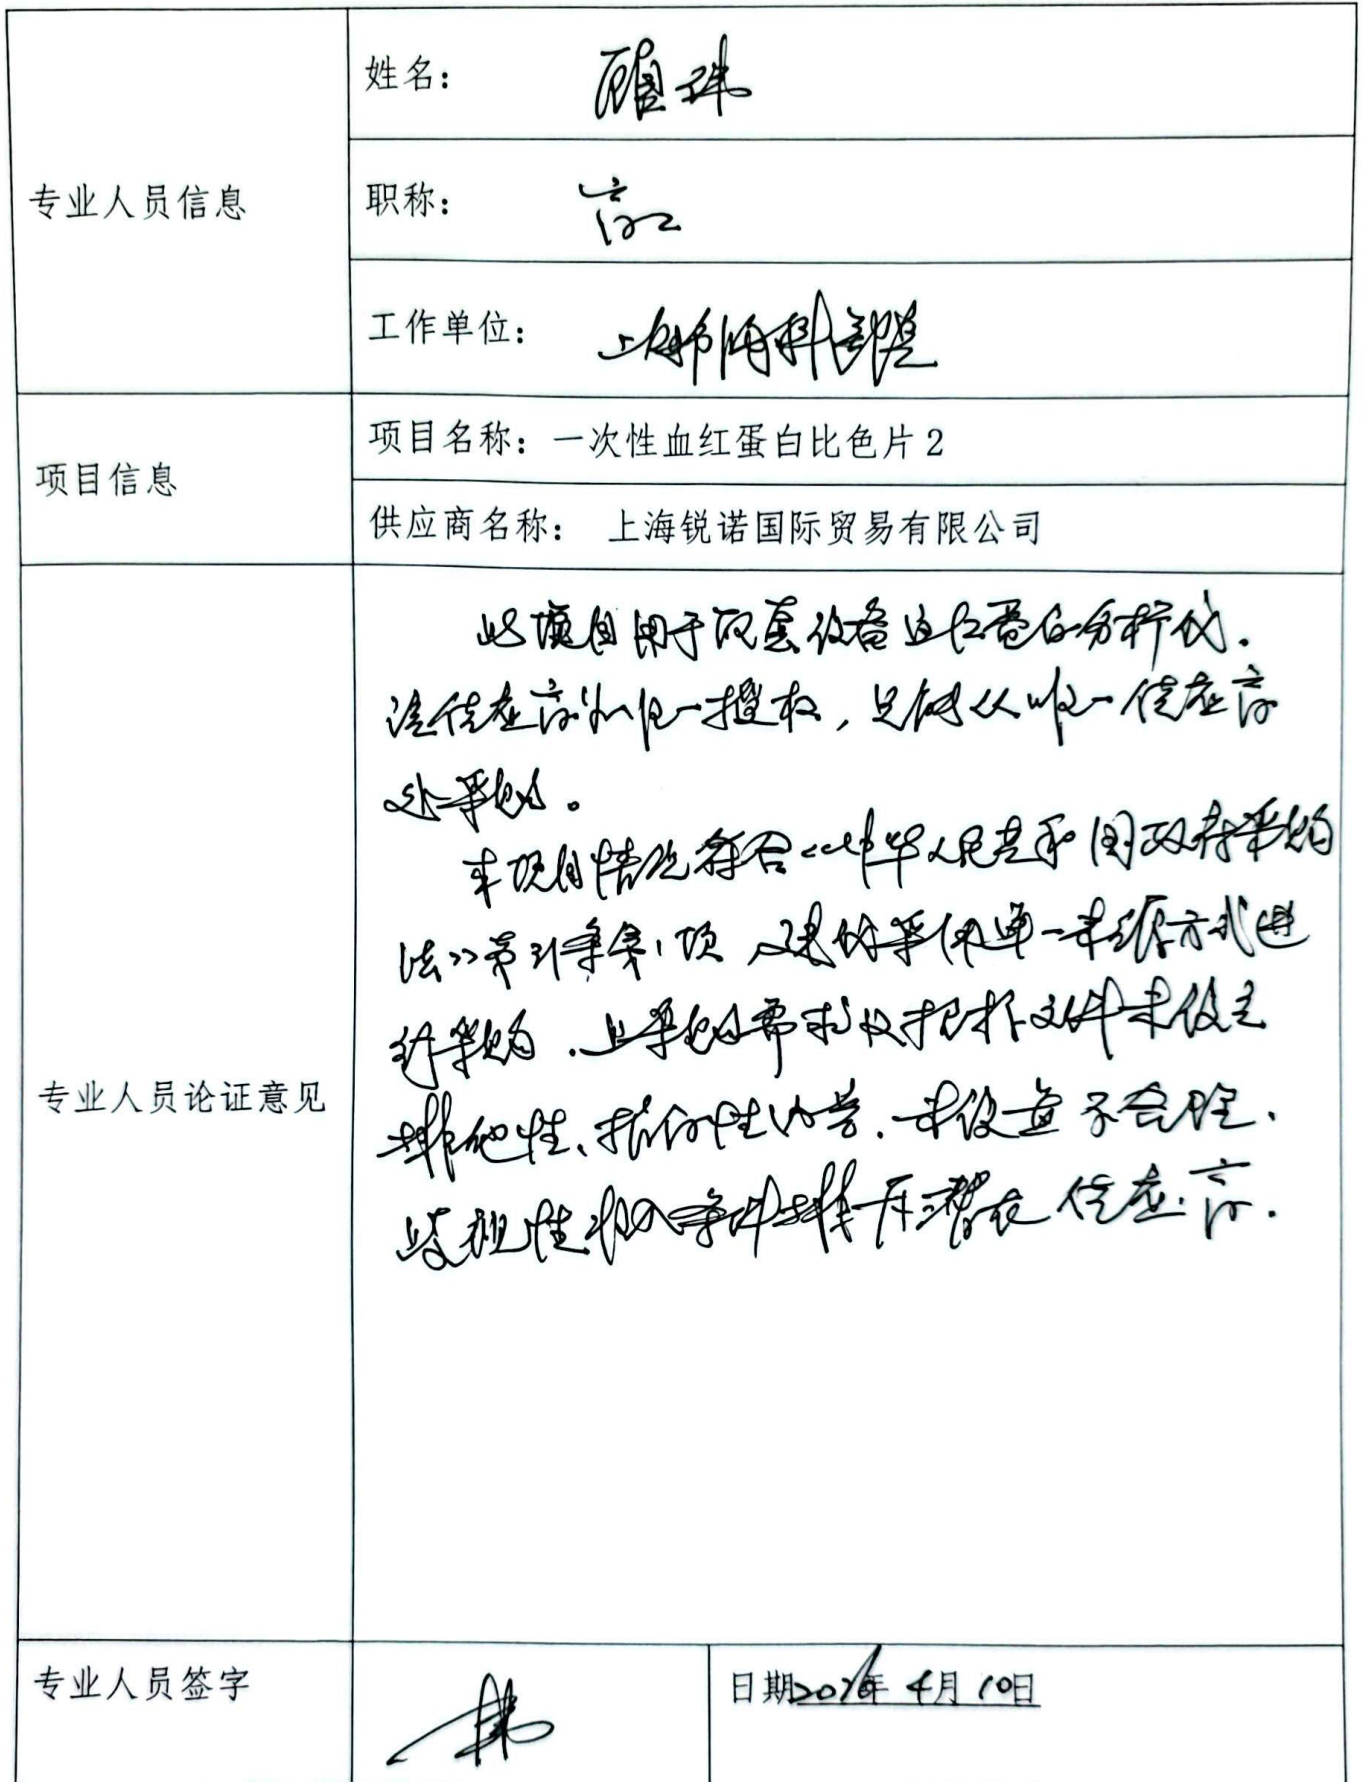 专业人员信息
姓名： 顾玮
职称： 高工
工作单位： 上海市肺科医院
项目信息
项目名称：一次性血红蛋白比色片2
供应商名称： 上海锐诺国际贸易有限公司
专业人员论证意见
此项目用于配套设备血红蛋白分析仪.
该供应商为唯一授权，只能从唯一供应商
处采购。
本项目情况符合《中华人民共和国政府采购
法》第31条第1项 建议采用单一来源方式进
行采购.且采购需求及招标文件未设定
排他性、指向性内容.未设置不合理、
歧视性准入条件排斥潜在供应商.
专业人员签字
日期 年 4月10日